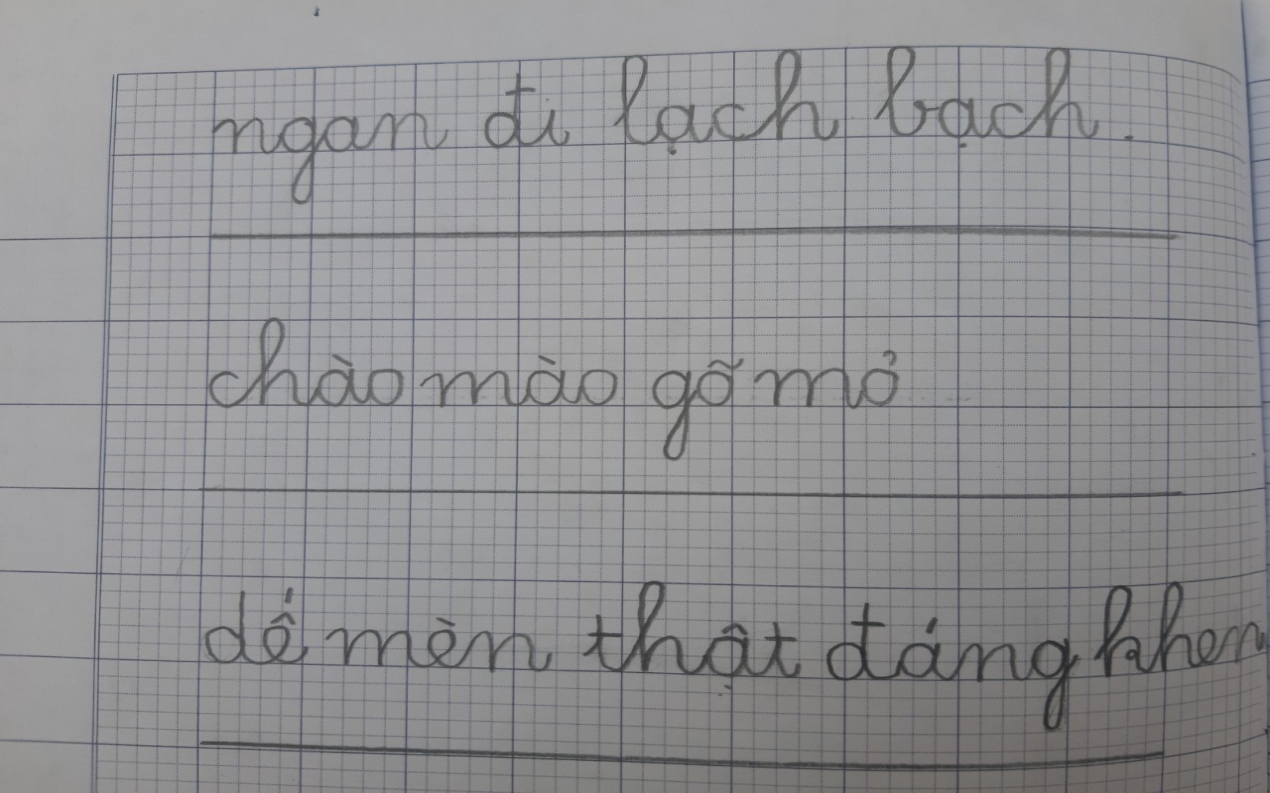 ngan đi lạch bạch.
chào mào gõ mỏ
dế mèn thật đáng khen